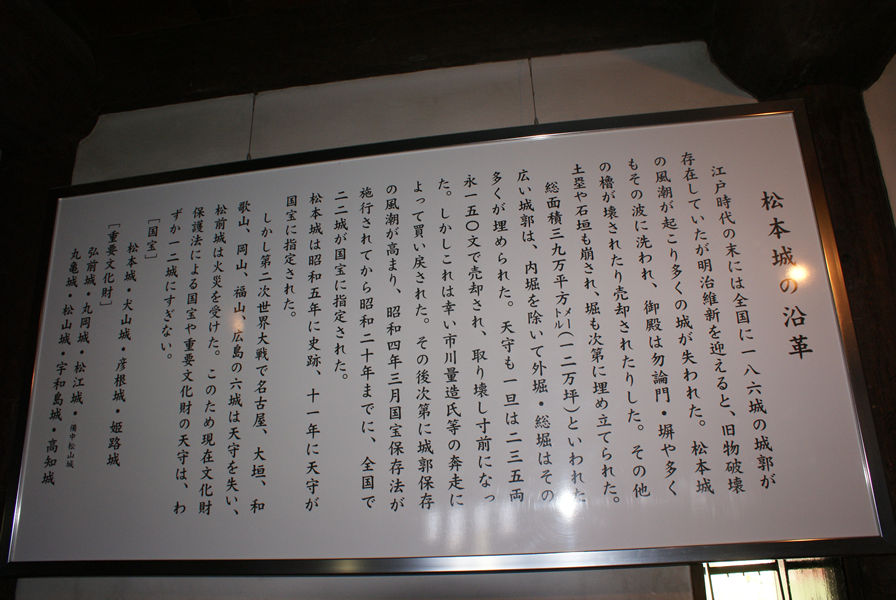 松本城の沿革
江戸時代の末には全国に一八六城の城郭が
存在していたが明治維新を迎えると、旧物破壊
の風潮が起こり多くの城が失われた。松本城
もその波に洗われ、御殿は勿論門・塀や多く
の櫓が壊されたり売却されたりした。その他
土塁や石垣も崩され、堀も次第に埋め立てられた。
総面積三九万平方メートル(一二万坪)といわれた
広い城郭は、内堀を除いて外堀・総堀はその
多くが埋められた。天守も一旦は二三五両
永一五〇文で売却され、取り壊し寸前になっ
た。しかしこれは幸い市川量造氏等の奔走に
よって買い戻された。その後次第に城郭保存
の風潮が高まり、昭和四年三月国宝保存法が
施行されてから昭和二十年までに、全国で
二二城が国宝に指定された。
松本城は昭和五年に史跡、十一年に天守が
国宝に指定された。
しかし第二次世界大戦で名古屋、大垣、和
歌山、岡山、福山、広島の六城は天守を失い、
松前城は火災を受けた。このため現在文化財
保護法による国宝や重要文化財の天守は、わ
ずか一二城にすぎない。
［国宝］
松本城・犬山城・彦根城・姫路城
［重要文化財］
弘前城・丸岡城・松江城・備中松山城
丸亀城・松山城・宇和島城・高知城